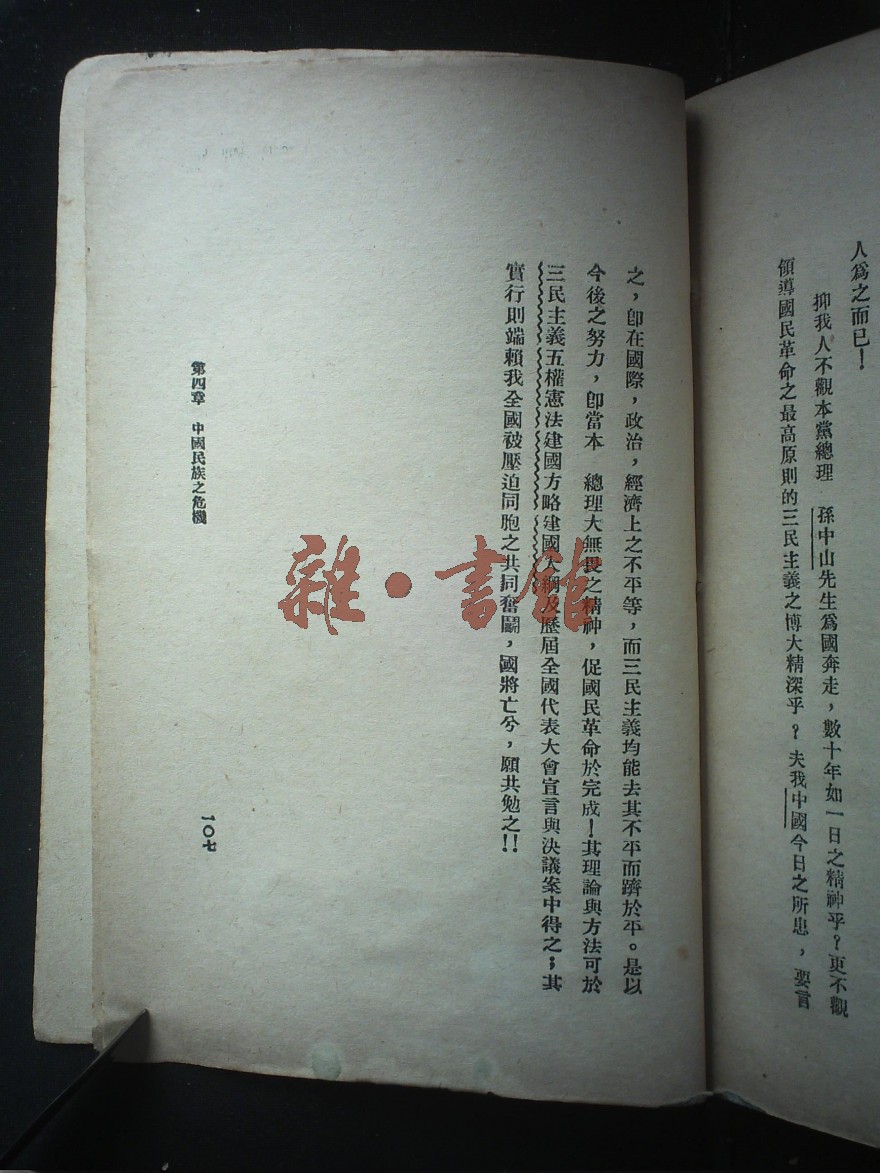 人爲之而已！
抑我人不觀本黨總理　孫中山先生爲國奔走，數十年如一日之精神乎？更不觀
領導國民革命之最高原則的三民主義之博大精深乎？夫我中國今日之所患，要言
之，卽在國際，政治，經濟上之不平等，而三民主義均能去其不平而躋於平。是以
今後之努力，卽當本　總理大無畏之精神，促國民革命於完成！其理論與方法可於
三民主義五權憲法建國方略建國大綱及歷屆全國代表大會宣言與決議案中得之；其
實行則端賴我全國被壓迫同胞之共同奮鬬，國將亡兮，願共勉之！！
第四章　中國民族之危機
一〇七
雜·書館